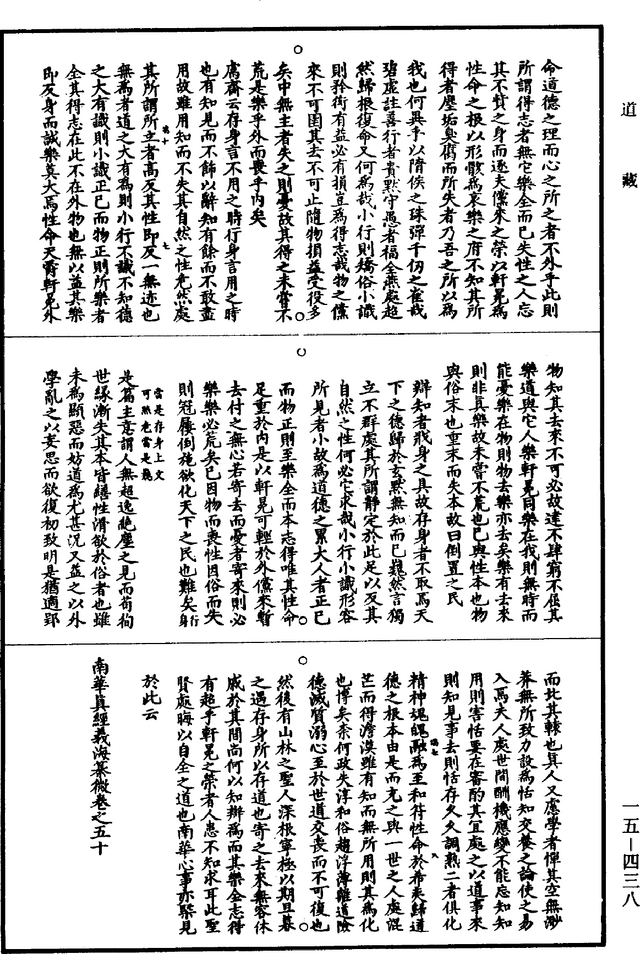 道藏
命道德之理而心之所之者不外乎此則
所謂得志者無它樂全而已失性之人忘
其不貲之身而逐夫儻來之榮以軒冕爲
性命之根以形骸爲哀樂之府不知其所
得者塵垢臭腐而所失者乃吾之所以爲
我也何異乎以隋侯之珠彈千仞之雀哉
碧虛註善行者貴默守愚者福全燕處超
然歸根復命又何爲哉小行則矯俗小識
則矜衒有益必有損豈爲得志哉物之儻
來不可圉其去不可止隨物損益受役多
矣中無主者失之則憂故其得之未嘗不
荒是樂乎外而喪乎內矣
鬳齋云存身言不用之時行身言用之時
也有知見而不飾以辭知有餘而不敢盡
用故雖用知而不失其自然之性危然處
其所謂所立者高反其性即反一無迹也
無爲者道之大有爲則小行不識不知德
之大有識則小識正己而物正則所樂者
全其得志在此不在外物也無以益其樂
即反身而誠樂莫大焉性命天爵軒冕外
物知其去來不可必故達不肆窮不屈其
樂道與它人樂軒冕同樂在我則無時而
能憂樂在物則物去樂亦去矣樂有去來
則非真樂故未嘗不荒也已與性本也物
與俗末也重末而失本故曰倒置之民
辯知者戕身之具故存身者不取焉天
下之德歸於玄默無知而已巍然言獨
立不群處其所謂靜定於此足以反其
自然之性何必它求哉小行小識形容
所見者小故爲道德之累大人者正己
而物正則至樂全而本志得唯其性命
足重於內是以軒冕可輕於外儻來暫
去付之無心若寄去而憂者寄來則必
樂樂必荒矣已因物而喪性因俗而失
則冠屨倒施欲化天下之民也難矣行身
當是存身上文
可照危當是巍
是篇主意謂人無超逸絶塵之見而茍徇
世緣漸失其本皆繕性滑欲於俗者也雖
未爲顯惡而妨道爲尤甚況又益之以外
學亂之以妄思而欲復初致明是猶適郢
而北其轅也真人又慮學者憚其空無渺
莽無所致力設爲恬知交養之論使之易
入焉夫人處世間酬機應變不能忘知知
用則害恬要在審酌其宜處之以道事來
則知見事去則恬存久久調熟二者俱化
精神魂魄融爲至和符性命於希夷歸道
德之根本由是而充之與一世之人處混
芒而得澹漠雖有知而無所用則其爲化
也博矣奈何政失淳和俗趨浮薄離道險
德滅質溺心至於世道交喪而不可復也
然後有山林之聖人深根寧極以期旦暮
之遇存身所以存道也寄之去來無容休
戚於其間尚何以知辯爲而其樂全志得
有超乎軒冕之榮者人患不知求耳此聖
賢處晦以自全之道也南華心事亦槩見
於此云
南華真經義海纂微卷之五十
一五－四三八